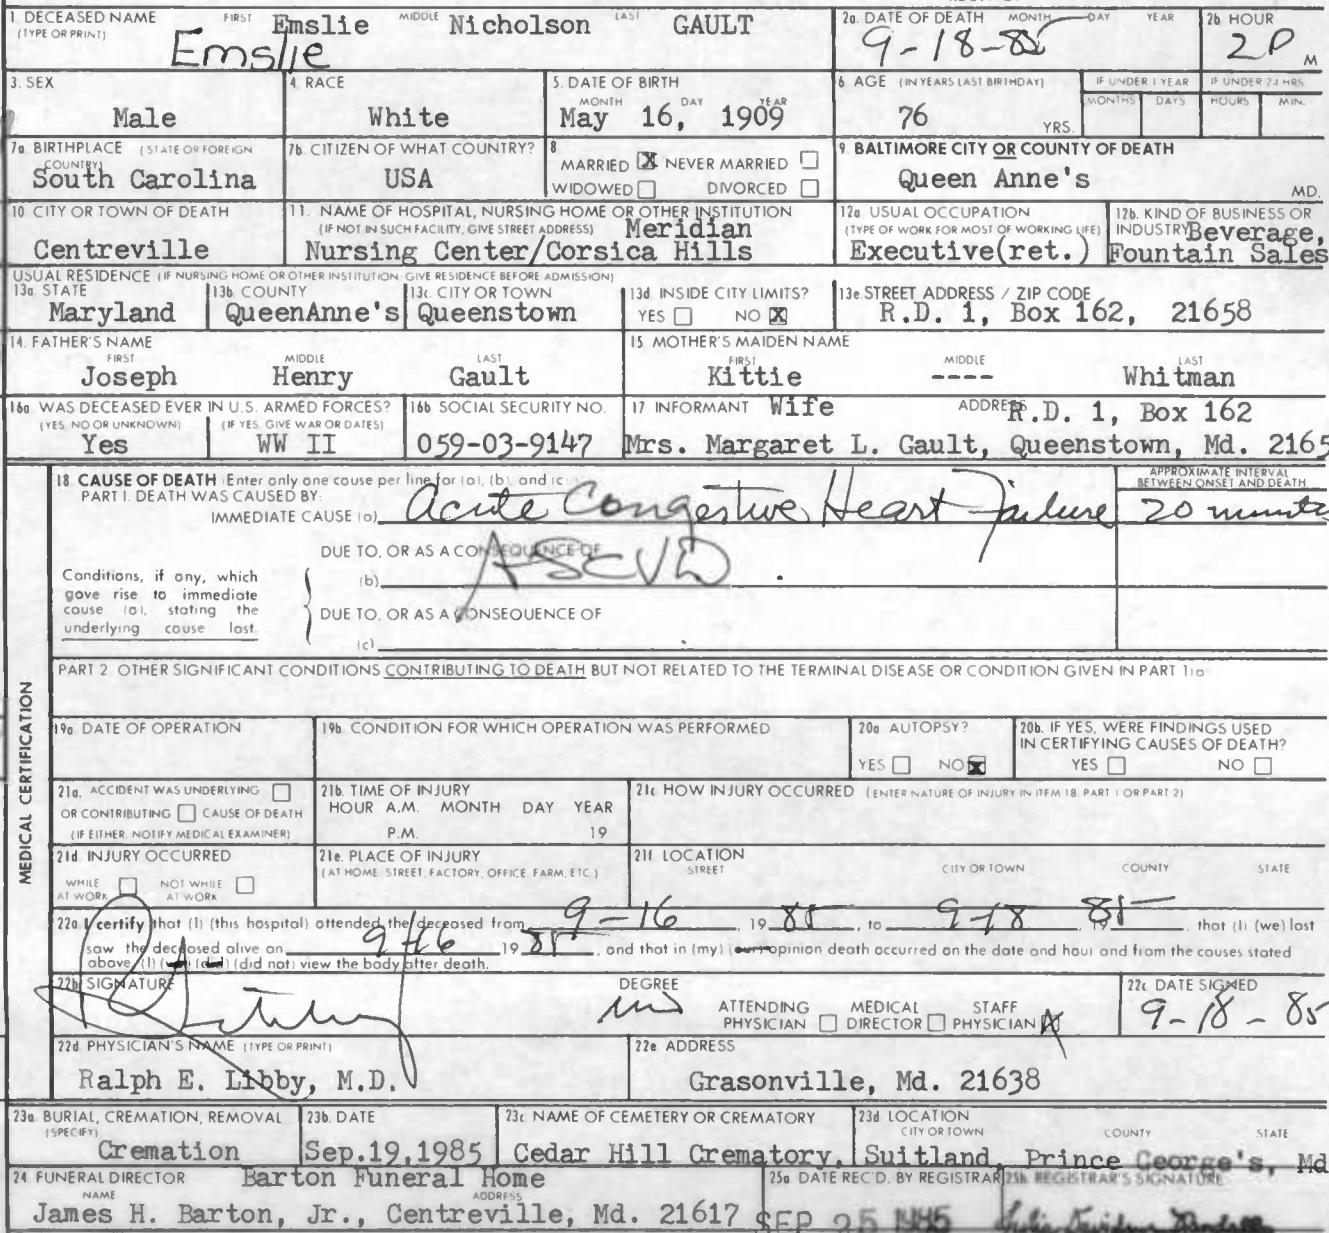 1 DECEASED NAME FIRST MIDDLE LAST
(TYPE OR PRINT)
Emslie Nicholson GAULT
Emslie
2a. DATE OF DEATH MONTH DAY YEAR
9-18-85
2b HOUR
2P M
3. SEX
Male
4 RACE
White
5. DATE OF BIRTH
MONTH DAY YEAR
May 16, 1909
6 AGE (IN YEARS LAST BIRTHDAY)
76 YRS.
IF UNDER 1 YEAR
MONTHS DAYS
IF UNDER 24 HRS.
HOURS MIN.
7a BIRTHPLACE (STATE OR FOREIGN
COUNTRY)
South Carolina
7b CITIZEN OF WHAT COUNTRY?
USA
8
MARRIED X NEVER MARRIED
WIDOWED DIVORCED
9. BALTIMORE CITY OR COUNTY OF DEATH
Queen Anne's MD.
10 CITY OR TOWN OF DEATH
Centreville
11. NAME OF HOSPITAL, NURSING HOME OR OTHER INSTITUTION
(IF NOT IN SUCH FACILITY, GIVE STREET ADDRESS) Meridian
Nursing Center/Corsica Hills
12a USUAL OCCUPATION
(TYPE OF WORK FOR MOST OF WORKING LIFE)
Executive(ret.)
12b. KIND OF BUSINESS OR
INDUSTRY Beverage,
Fountain Sales
USUAL RESIDENCE (IF NURSING HOME OR OTHER INSTITUTION GIVE RESIDENCE BEFORE ADMISSION)
13a. STATE
Maryland
13b COUNTY
QueenAnne's
13c. CITY OR TOWN
Queenstown
13d. INSIDE CITY LIMITS?
YES NO X
13e. STREET ADDRESS / ZIP CODE
R.D. 1, Box 162, 21658
14. FATHER'S NAME
FIRST MIDDLE LAST
Joseph Henry Gault
15 MOTHER'S MAIDEN NAME
FIRST MIDDLE LAST
Kittie ---- Whitman
16a WAS DECEASED EVER IN U.S. ARMED FORCES?
(YES, NO OR UNKNOWN) (IF YES, GIVE WAR OR DATES)
Yes WW II
16b SOCIAL SECURITY NO.
059-03-9147
17 INFORMANT Wife ADDRESS R.D. 1, Box 162
Mrs. Margaret L. Gault, Queenstown, Md. 2165
MEDICAL CERTIFICATION
18 CAUSE OF DEATH (Enter only one cause per line for (a), (b), and (c
PART I. DEATH WAS CAUSED BY:
IMMEDIATE CAUSE (a) Acute Congestive Heart Failure
APPROXIMATE INTERVAL
BETWEEN ONSET AND DEATH
20 minutes
DUE TO, OR AS A CONSEQUENCE OF
(b) ASCVD
Conditions, if any, which
gave rise to immediate
cause (a), stating the
underlying cause last
DUE TO, OR AS A CONSEQUENCE OF
(c)
PART 2 OTHER SIGNIFICANT CONDITIONS CONTRIBUTING TO DEATH BUT NOT RELATED TO THE TERMINAL DISEASE OR CONDITION GIVEN IN PART 1(a
19a DATE OF OPERATION
19b. CONDITION FOR WHICH OPERATION WAS PERFORMED
20a AUTOPSY?
YES NO X
20b. IF YES, WERE FINDINGS USED
IN CERTIFYING CAUSES OF DEATH?
YES NO
21a. ACCIDENT WAS UNDERLYING
OR CONTRIBUTING CAUSE OF DEATH
(IF EITHER, NOTIFY MEDICAL EXAMINER)
21b. TIME OF INJURY
HOUR A.M. MONTH DAY YEAR
P.M. 19
21c HOW INJURY OCCURRED (ENTER NATURE OF INJURY IN ITEM 18, PART 1 OR PART 2)
21d INJURY OCCURRED
WHILE AT WORK NOT WHILE AT WORK
21e. PLACE OF INJURY
(AT HOME, STREET, FACTORY, OFFICE, FARM, ETC.)
21f LOCATION
STREET CITY OR TOWN COUNTY STATE
22a I certify that (I) (this hospital) attended the deceased from 9-16, 1985, to 9-18, 1985, that (I) (we) last
saw the deceased alive on 9-16 1985, and that in (my) (our) opinion death occurred on the date and hour and from the causes stated
above. (I) (we) (did) (did not) view the body after death.
22b SIGNATURE
DEGREE
MD
ATTENDING PHYSICIAN MEDICAL DIRECTOR STAFF PHYSICIAN X
22c DATE SIGNED
9-18-85
22d. PHYSICIAN'S NAME (TYPE OR PRINT)
Ralph E. Libby, M.D.
22e ADDRESS
Grasonville, Md. 21638
23a BURIAL, CREMATION, REMOVAL
(SPECIFY)
Cremation
23b. DATE
Sep.19,1985
23c NAME OF CEMETERY OR CREMATORY
Cedar Hill Crematory,
23d LOCATION
CITY OR TOWN COUNTY STATE
Suitland, Prince George's, Md
24 FUNERAL DIRECTOR Barton Funeral Home
NAME ADDRESS
James H. Barton, Jr., Centreville, Md. 21617
25a DATE REC'D. BY REGISTRAR
SEP 25 1985
25b REGISTRAR'S SIGNATURE